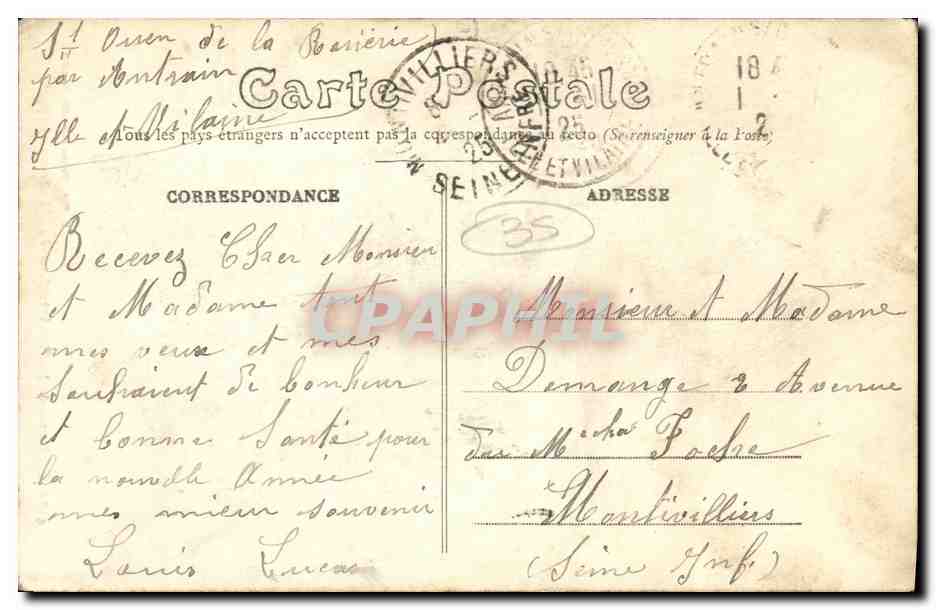 St Ouen de la Rouërie
par Antrain
Ille et Vilaine
Carte Postale
Tous les pays étrangers n'acceptent pas la correspondance au recto (Se renseigner à la Poste)
MONTIVILLIERS
25
SEINE INFRE
10 45
25
ET VILAINE
18
1
2
CORRESPONDANCE
ADRESSE
35
Recevez Cher Monsieur
et Madame tout
mes veux et mes
Souhaient de bonheur
et bonne Santé pour
la nouvelle Année
mes mieur souvenir
Louis Lucas
Monsieur et Madame
Demange 2 Avenue
du Mechal Foche
Montivilliers
(Seine Inf.)
CPAPHIL